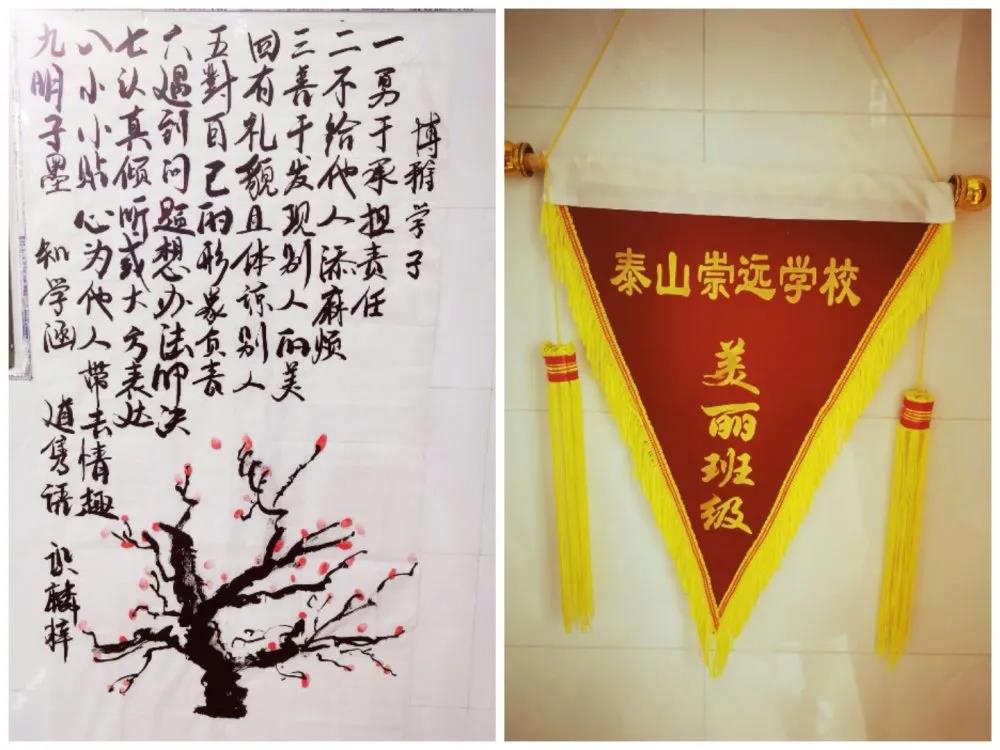 博雅学子
一勇于承担责任
二不给他人添麻烦
三善于发现别人的美
四有礼貌且体谅别人
五對自己的形象负责
六遇到问题想办法解决
七认真倾听或大方表达
八小小贴心为他人带去情趣
九明子墨 知学涵 道隽语 识麟梓
泰山崇远学校
美丽班级